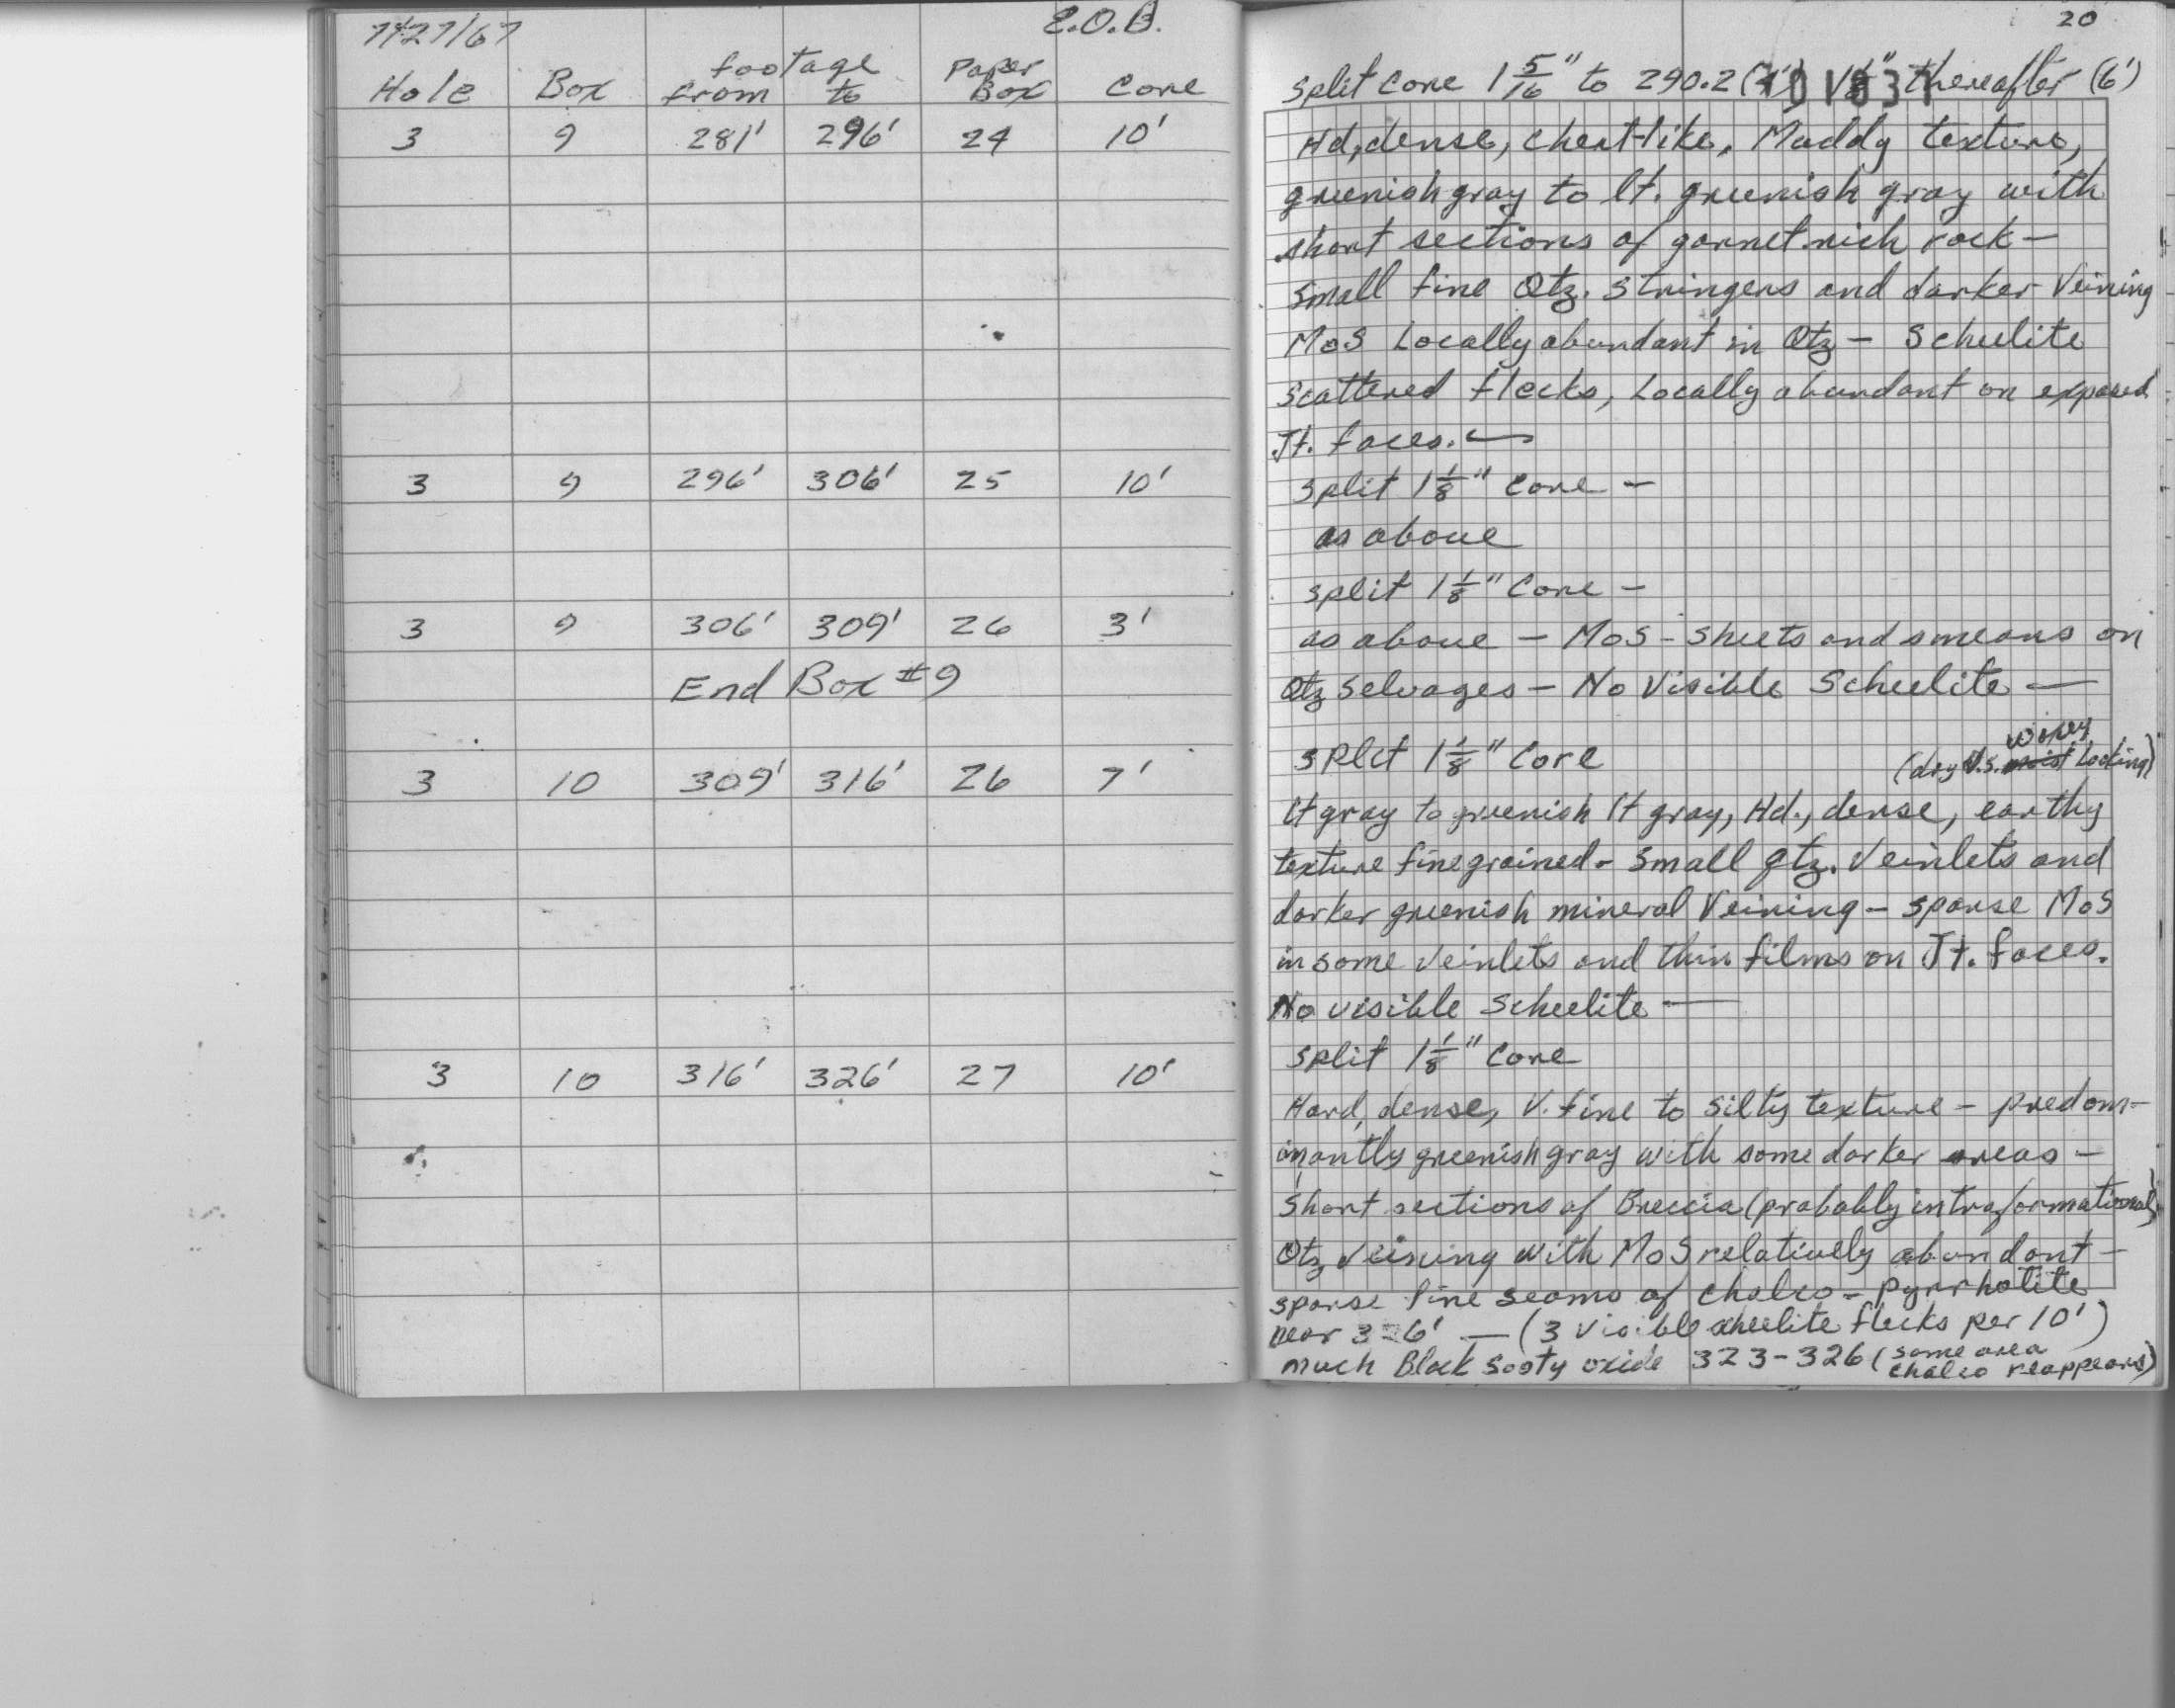 7/27/67 E.O.B.
footage Paper
Hole Box from to Box Core
3 9 281' 296' 24 10'
3 9 296' 306' 25 10'
3 9 306' 309' 26 3'
End Box #9
3 10 309' 316' 26 7'
3 10 316' 326' 27 10'
20
Split Core 1 5/16" to 290.2 (4') 1 1/8" thereafter (6')
101837
Hd, dense, chert-like, Muddy texture,
greenish gray to lt. greenish gray with
short sections of garnet rich rock —
small fine Qtz. stringers and darker Veining
MoS Locally abundant in Qtz — Scheelite
scattered flecks, Locally abundant on exposed
Jt. faces.
split 1 1/8" Core —
as above
split 1 1/8" Core —
as above — MoS - sheets and smears on
Qtz Selvages — No Visible Scheelite —
split 1 1/8" Core
(dry V.S. moist Looking)
lt gray to greenish lt gray, Hd., dense, earthy
texture fine grained - small qtz. Veinlets and
darker greenish mineral Veining — sparse MoS
in some veinlets and thin films on Jt. faces.
No visible Scheelite —
split 1 1/8" Core
Hard, dense, V. fine to silty texture — predom-
inantly greenish gray with some darker areas —
Short sections of Breccia (probably intraformational)
Qtz veining with MoS relatively abundant —
sparse fine seams of chalco - pyrrhotite
near 326' — (3 visible scheelite flecks per 10')
much Black sooty oxide 323-326 (same area
chalco reappears)